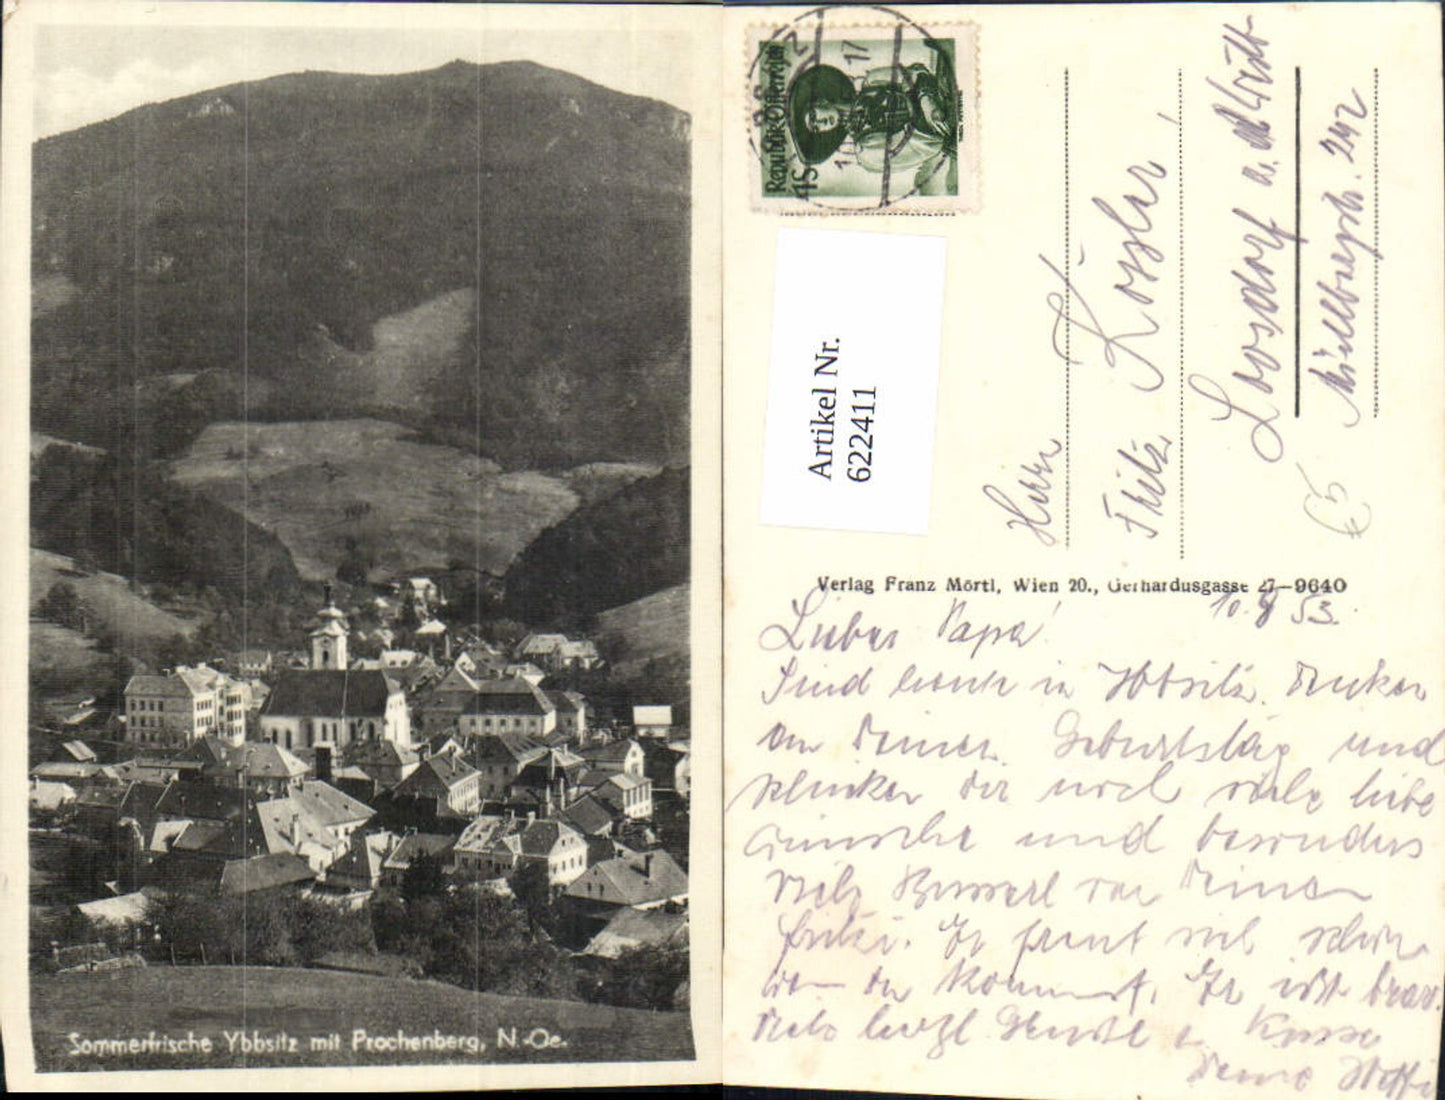 Sommerfrische Ybbsitz mit Prochenberg, N.-Oe.
Republik Österreich
Artikel Nr.
622411
Herrn
Fritz Kössler!
Loosdorf
242
Verlag Franz Mörtl, Wien 20., Gerhardusgasse 27—9640
10. 53.
Lieber Papa!
Sind heute in Ybbsitz. Denken
an Deinen Geburtstag und
schicken Dir noch viele liebe
Wünsche und besonders
viele Busserl von Deinen
Fritzi. Er freut sich schon
wenn Du kommst. Er ist brav.
Viele herzl. Grüsse u. Küsse
Deine Steffi